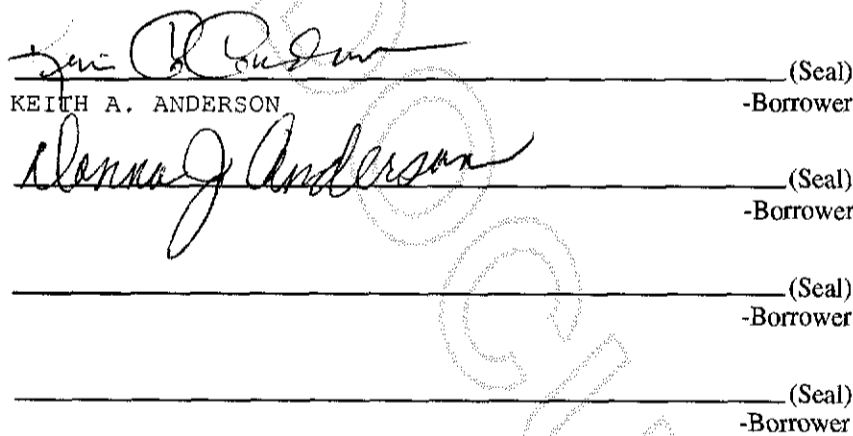 (Seal)
KEITH A. ANDERSON
-Borrower
Donna J Anderson (Seal)
-Borrower
(Seal)
-Borrower
(Seal)
-Borrower